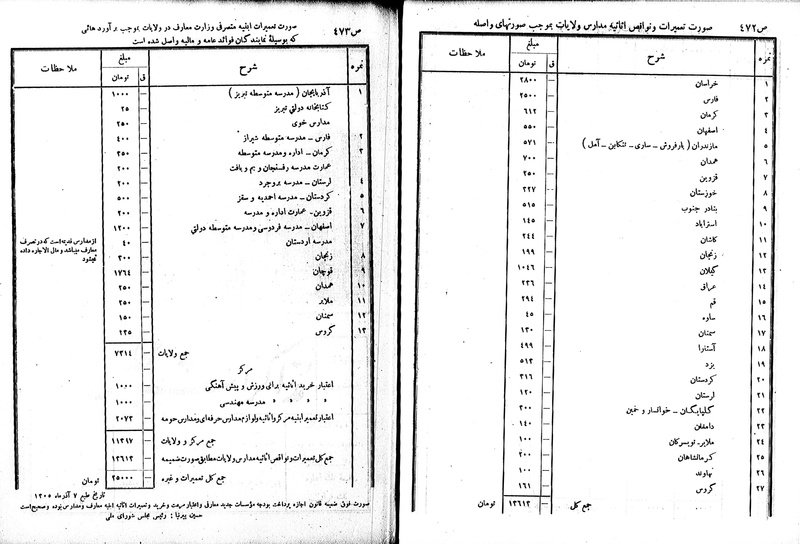 ص۴۷۲ صورت تعمیرات و نواقص اثاثیه مدارس ولایات بموجب صورتهای واصله
نمره شرح مبلغ ملاحظات
تومان ق
۱ خراسان ۲۸۰۰
۲ فارس ۲۵۰۰
۳ کرمان ۶۱۲
۴ اصفهان ۵۵۰
۵ مازندران (بارفروش ــ ساری ــ تنکابن ــ آمل) ۵۷۱
۶ همدان ۷۰۰
۷ قزوین ۲۵۰
۸ خوزستان ۲۲۷
۹ بنادر جنوب ۵۱۵
۱۰ استراباد ۱۴۵
۱۱ کاشان ۲۴۴
۱۲ زنجان ۱۹۹
۱۳ گیلان ۱۰۴۶
۱۴ عراق ۲۳۶
۱۵ قم ۲۹۴
۱۶ ساوه ۴۵
۱۷ سمنان ۱۳۰
۱۸ آستارا ۴۹۹
۱۹ یزد ۵۱۳
۲۰ کردستان ۳۱۶
۲۱ لرستان ۱۲۰
۲۲ گلپایگان ــ خوانسار و خمین ۳۰۰
۲۳ دامغان ۱۴۰
۲۴ ملایر ـ تویسرکان ۱۰۰
۲۵ کرمانشاهان ۲۰۰
۲۶ نهاوند ۱۰۰
۲۷ گروس ۱۶۱
جمع کل ۱۳۶۱۳ تومان
ص۴۷۳ صورت تعمیرات ابنیه متصرفی وزارت معارف در ولایات بموجب برآوردهائی
که بوسیلهٔ نمایندگان فوائد عامه و مالیه واصل شده است
نمره شرح مبلغ ملاحظات
تومان ق
۱ آذربایجان (مدرسه متوسطه تبریز) ۱۰۰۰
کتابخانه دولتی تبریز ۲۵
مدارس خوی ۲۵۰
۲ فارس ــ مدرسه متوسطه شیراز ۴۰۰
۳ کرمان ــ اداره و مدرسه متوسطه ۳۵۰
عمارت مدرسه رفسنجان و بم و بافت ۲۰۰
۴ لرستان ــ مدرسه بروجرد ۲۰۰
۵ کردستان ــ مدرسه احمدیه و سقز ۵۰۰
۶ قزوین ـ عمارت اداره و مدرسه ۲۰۰
۷ اصفهان ــ مدرسه فردوسی و مدرسه متوسطه دولتی ۱۲۰۰
مدرسه اردستان ۴۰ از مدارس قدیمه است که در تصرف
معارف میباشد و مال الاجاره داده
نمیشود
۸ زنجان ۳۰۰
۹ قوچان ۱۷۶۴
۱۰ همدان ۲۵۰
۱۱ ملایر ۲۵۰
۱۲ سمنان ۱۵۰
۱۳ گروس ۲۳۵
جمع ولایات ۷۳۱۴
مرکز
اعتبار خرید اثاثیه برای ورزش و پیش آهنگی ۱۰۰۰
» » » مدرسه مهندسی ۱۰۰۰
اعتبار تعمیر ابنیه مرکز و اثاثیه و لوازم مدارس حرفه‌ای و مدارس حومه ۲۰۷۳
جمع مرکز و ولایات ۱۱۳۸۷
جمع کل تعمیرات و نواقص اثاثیه مدارس ولایات مطابق صورت ضمیمه ۱۳۶۱۳
جمع کل تعمیرات و غیره ۲۵۰۰۰ تومان
تاریخ طبع ۷ آذر ماه ۱۳۰۵
صورت فوق ضمیمه قانون اجازه پرداخت بودجه مؤسسات جدید معارفی و اعتبار سرعت و خرید و تعمیرات اثاثیه ابنیه معارف و مدارس بوده و صحیح است
حسین پیرنیا : رئیس مجلس شورای ملی